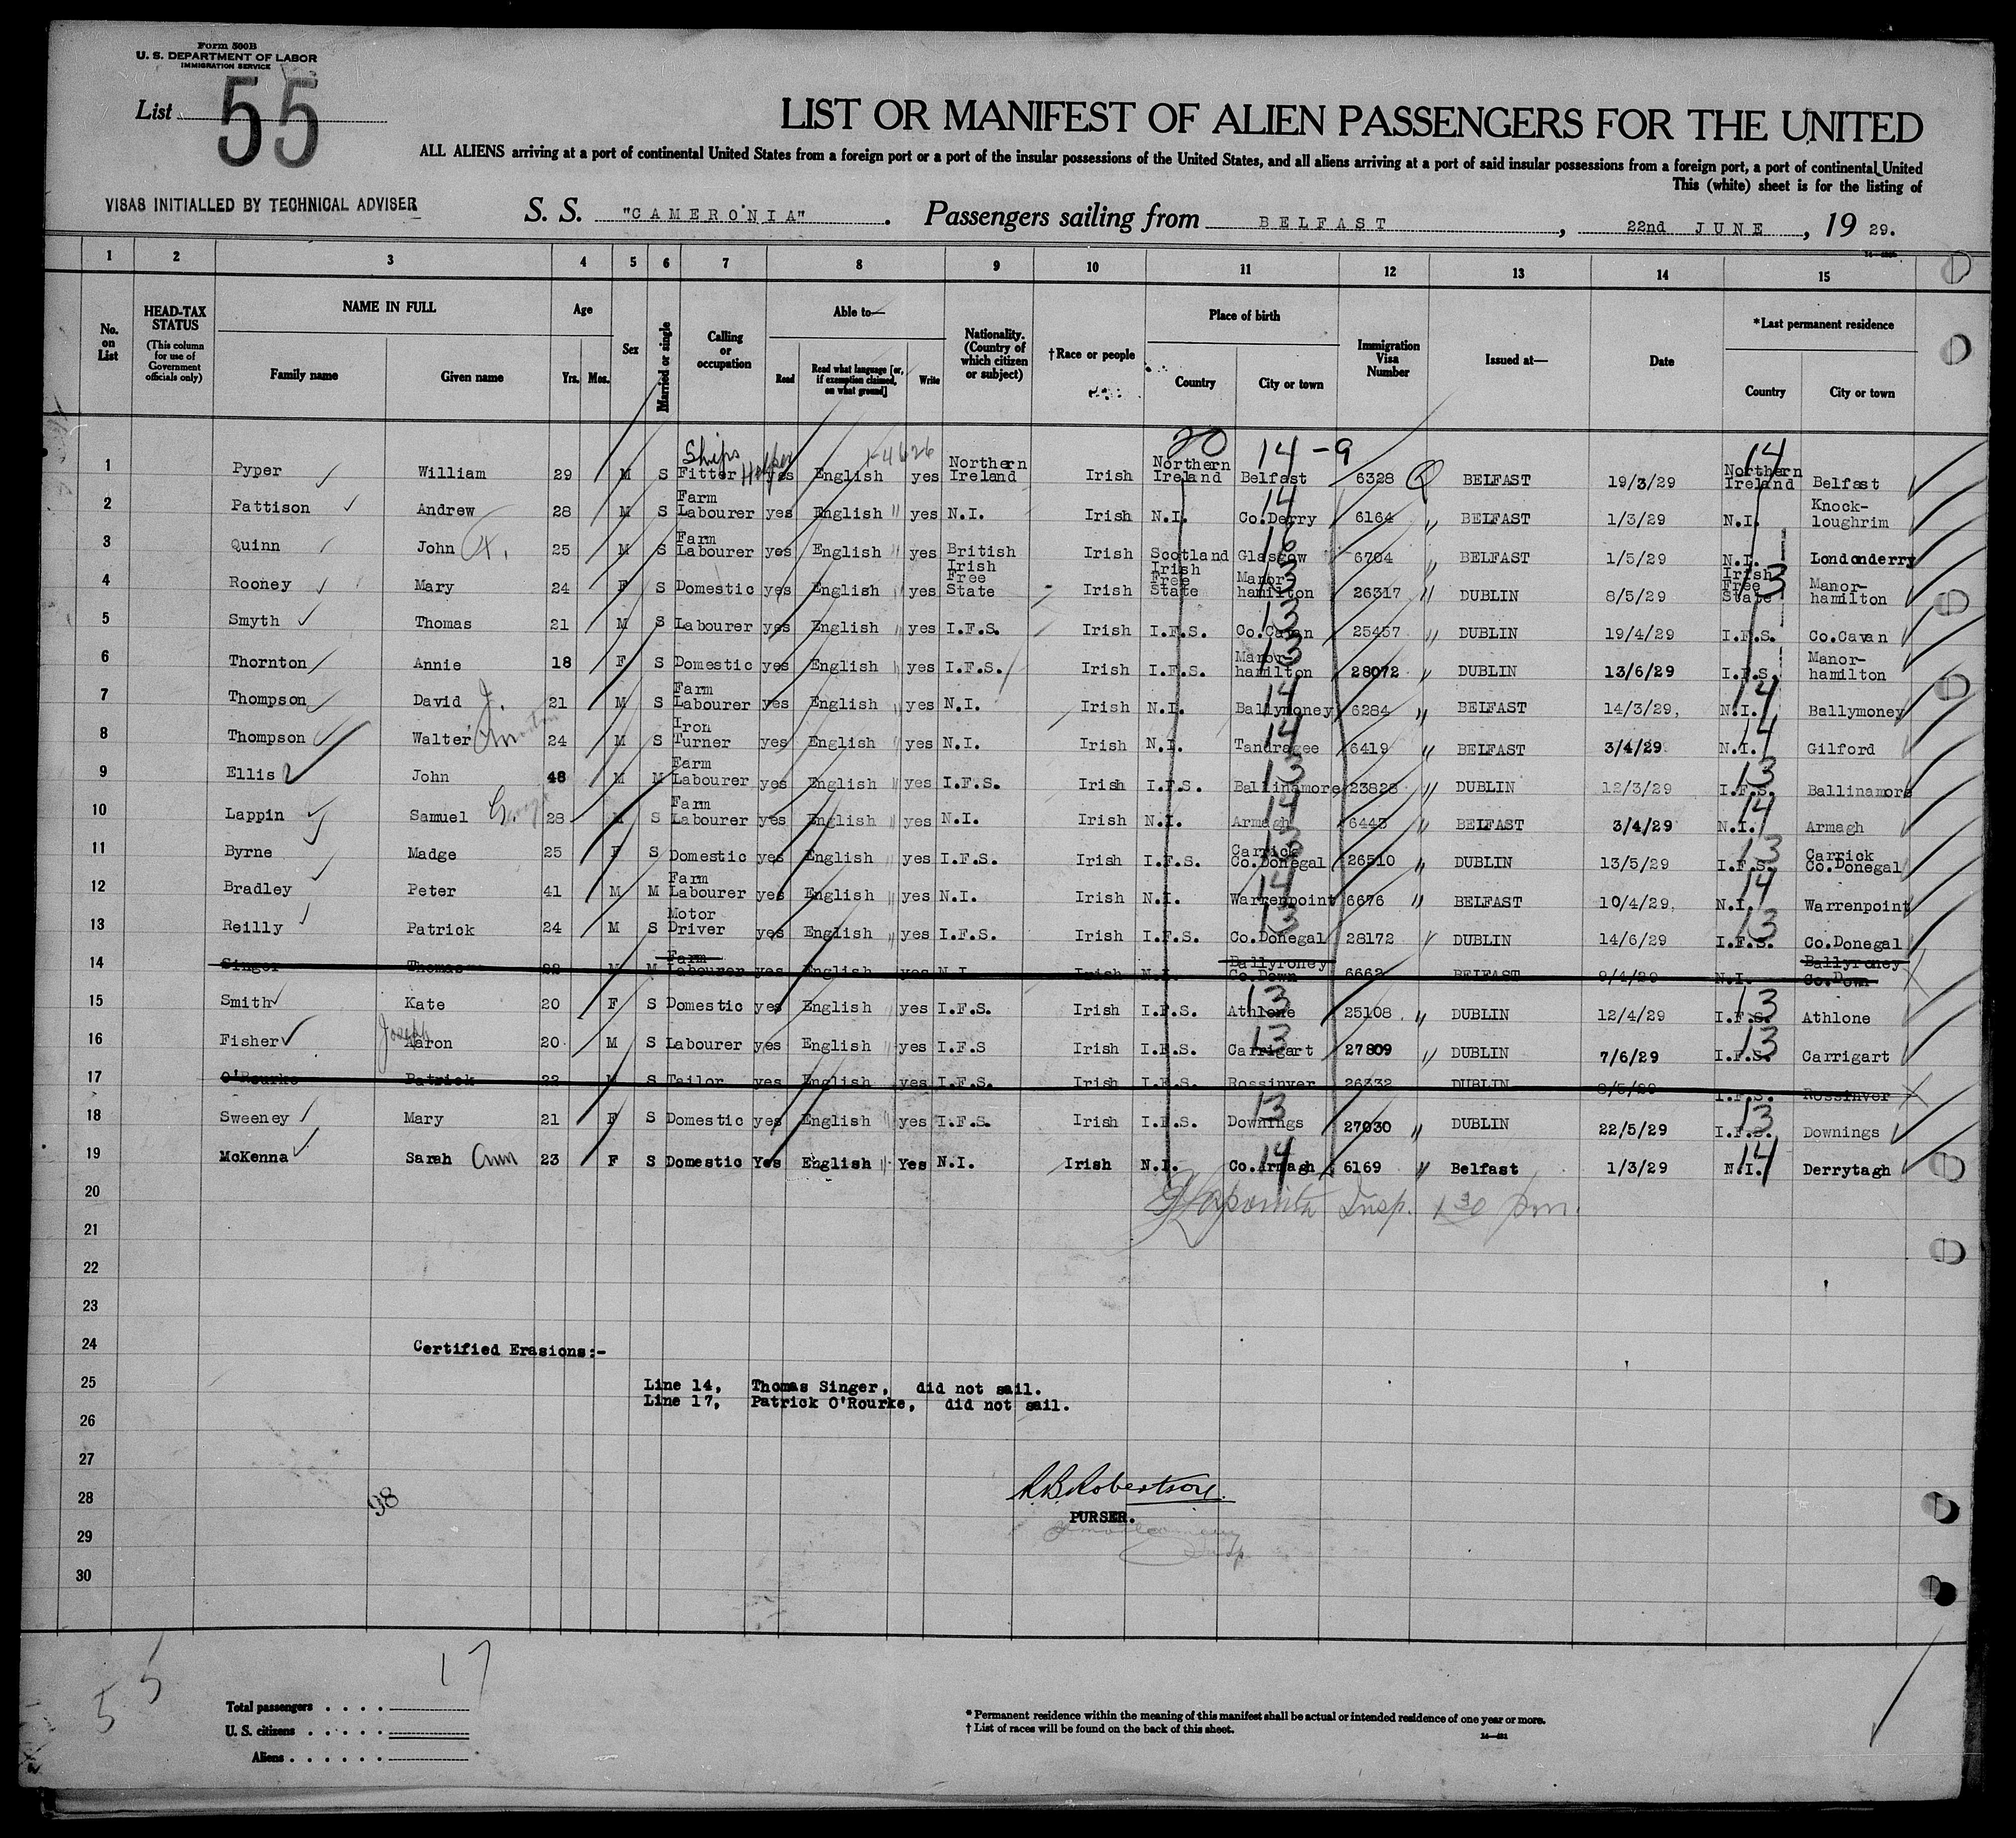 Form 500B
U. S. DEPARTMENT OF LABOR
IMMIGRATION SERVICE
List 55
LIST OR MANIFEST OF ALIEN PASSENGERS FOR THE UNITED
ALL ALIENS arriving at a port of continental United States from a foreign port or a port of the insular possessions of the United States, and all aliens arriving at a port of said insular possessions from a foreign port, a port of continental United
This (white) sheet is for the listing of
VISAS INITIALLED BY TECHNICAL ADVISER
S. S. "CAMERONIA". Passengers sailing from BELFAST, 22nd JUNE, 19 29.
1 2 3 4 5 6 7 8 9 10 11 12 13 14 15
No. on List
HEAD-TAX STATUS (This column for use of Government officials only)
NAME IN FULL Family name Given name
Age Yrs. Mos.
Sex
Married or single
Calling or occupation
Able to— Read Read what language [or, if exemption claimed, on what ground] Write
Nationality. (Country of which citizen or subject)
†Race or people
Place of birth Country City or town
Immigration Visa Number
Issued at—
Date
*Last permanent residence Country City or town
20 14-9 14
1 Pyper William 29 M S Ships Fitter Helper yes English 1-4626 yes Northern Ireland Irish Northern Ireland Belfast 6328 BELFAST 19/3/29 Northern Ireland Belfast
2 Pattison Andrew 28 M S Farm Labourer yes English " yes N.I. Irish N.I. Co.Derry 14 6164 " BELFAST 1/3/29 N.I. Knock-loughrim
3 Quinn John 25 M S Farm Labourer yes English " yes British Irish Scotland Glasgow 16 6704 " BELFAST 1/5/29 N.I. Londonderry
4 Rooney Mary 24 F S Domestic yes English " yes Irish Free State Irish Irish Free State Manor-hamilton 13 26317 " DUBLIN 8/5/29 Irish Free State 13 Manor-hamilton
5 Smyth Thomas 21 M S Labourer yes English " yes I.F.S. Irish I.F.S. Co.Cavan 13 25457 " DUBLIN 19/4/29 I.F.S. Co.Cavan
6 Thornton Annie 18 F S Domestic yes English " yes I.F.S. Irish I.F.S. Manor-hamilton 13 28072 " DUBLIN 13/6/29 I.F.S. Manor-hamilton
7 Thompson David J. 21 M S Farm Labourer yes English " yes N.I. Irish N.I. Ballymoney 14 6284 " BELFAST 14/3/29, N.I. 14 Ballymoney
8 Thompson Walter 24 M S Iron Turner yes English " yes N.I. Irish N.I. Tandragee 14 6419 " BELFAST 3/4/29 N.I. 14 Gilford
9 Ellis John 48 M M Farm Labourer yes English " yes I.F.S. Irish I.F.S. Ballinamore 13 23828 " DUBLIN 12/3/29 I.F.S. 13 Ballinamore
10 Lappin Samuel George 28 M S Farm Labourer yes English " yes N.I. Irish N.I. Armagh 14 6443 " BELFAST 3/4/29 N.I. 14 Armagh
11 Byrne Madge 25 F S Domestic yes English " yes I.F.S. Irish I.F.S. Carrick Co.Donegal 13 26510 " DUBLIN 13/5/29 I.F.S. 13 Carrick Co.Donegal
12 Bradley Peter 41 M M Farm Labourer yes English " yes N.I. Irish N.I. Warrenpoint 14 6676 " BELFAST 10/4/29, N.I. 14 Warrenpoint
13 Reilly Patrick 24 M S Motor Driver yes English " yes I.F.S. Irish I.F.S. Co.Donegal 13 28172 " DUBLIN 14/6/29 I.F.S. 13 Co.Donegal
14 Singer Thomas M M Farm Labourer yes English yes N.I. Irish N.I. Ballyroney Co.Down 6662 BELFAST 9/4/29 N.I. Ballyroney Co.Down
15 Smith Kate 20 F S Domestic yes English " yes I.F.S. Irish I.F.S. Athlone 13 25108 " DUBLIN 12/4/29 I.F.S. 13 Athlone
16 Fisher Joseph Aaron 20 M S Labourer yes English " yes I.F.S Irish I.F.S. Carrigart 13 27809 " DUBLIN 7/6/29 I.F.S. 13 Carrigart
17 O'Rourke Patrick 22 M S Tailor yes English yes I.F.S. Irish I.F.S. Rossinver 26332 DUBLIN 8/5/29 I.F.S. Rossinver
18 Sweeney Mary 21 F S Domestic yes English " yes I.F.S. Irish I.F.S. Downings 13 27030 " DUBLIN 22/5/29 I.F.S. 13 Downings
19 McKenna Sarah Ann 23 F S Domestic Yes English " Yes N.I. Irish N.I. Co.Armagh 14 6169 " Belfast 1/3/29 N.I. 14 Derrytagh
20 Insp. 1 30 pm.
21
22
23
24 Certified Erasions:-
25 Line 14, Thomas Singer, did not sail.
Line 17, Patrick O'Rourke, did not sail.
26
27
28 98 R.B. Robertson
PURSER.
29 Insp.
30
55 17
Total passengers . . . .
U. S. citizens . . . . .
Aliens . . . . . .
* Permanent residence within the meaning of this manifest shall be actual or intended residence of one year or more.
† List of races will be found on the back of this sheet.